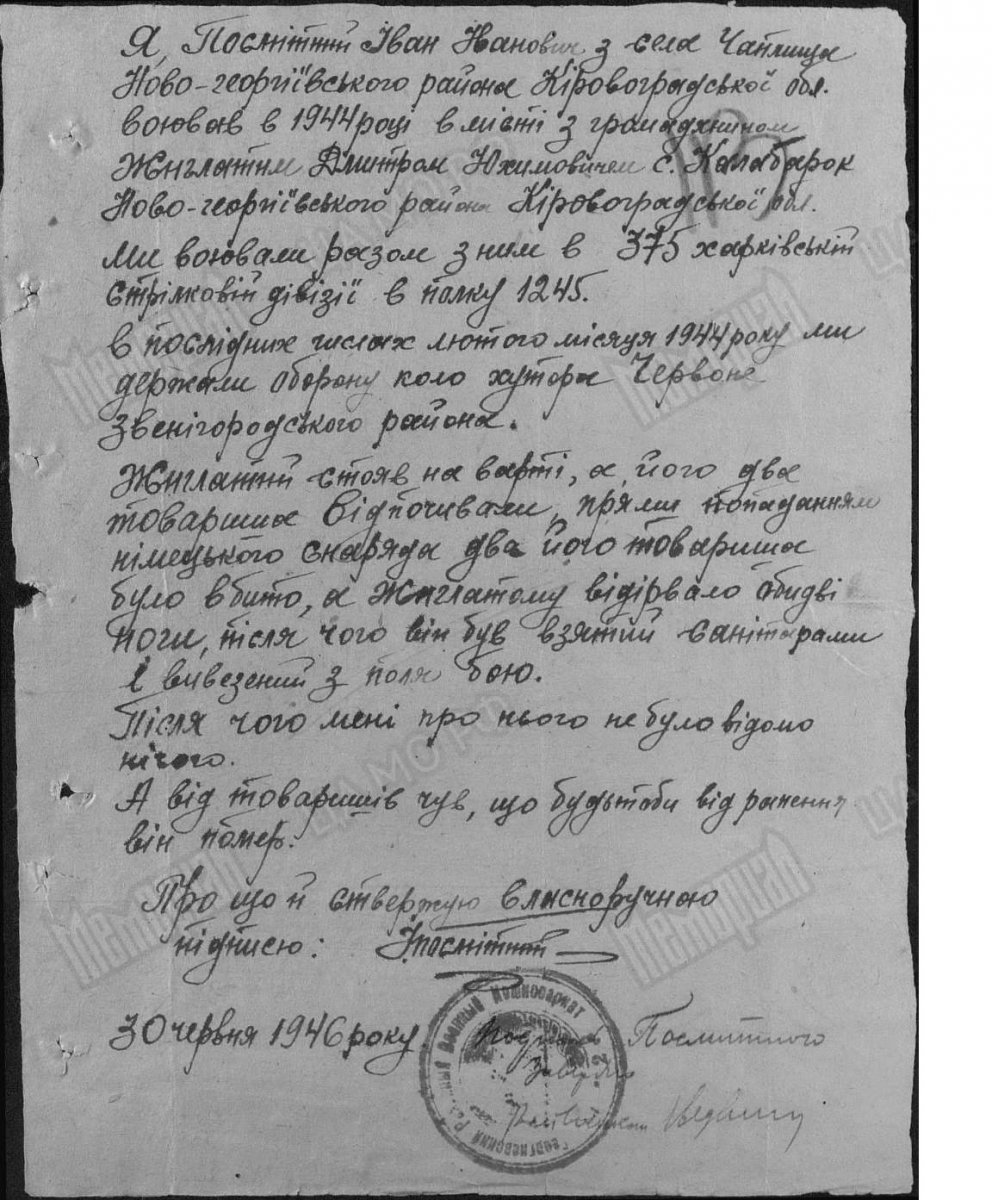 Я, Посмітний Іван Іванович з села Чаплища
Ново-георгіївського района Кіровоградської обл.
воював в 1944 році в місті з громадянином
Жиглатим Дмитром Юхимовичем с. Калабарок
Ново-георгіївського района Кіровоградської обл.
Ми воювали разом з ним в 375 харківській
стрілковій дівізії в полку 1245.
в послідних числах лютого місяця 1944 року ми
держали оборону коло хутора Червоне
Звенігородського района.
Жиглатий стояв на варті, а його два
товариша відпочивали, прями попаданням
німецького снаряда два його товариша
було вбито, а Жиглатому відірвало обидві
ноги, після чого він був взятий санітарами
і вивезений з поля бою.
Після чого мені про нього не було відомо
нічого.
А від товаришів чув, що будьтоби від ранення
він помер.
Про що й ствержую власноручною
підписю: Іпосмітний
30 червня 1946 року
Посмитного
Георгиевский Районный Военный Комиссариат
Мемориал
ЦАМО РФ